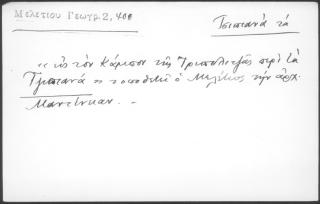 Μελετίου Γεωγρ. 2, 400
Τσιπιανά τά
«εἰς τὸν κάμπον τῆς Τριπολιτζᾶς περὶ τὰ
Τζιπιανά» τοποθετεῖ ὁ Μελέτιος τὴν ἀρχ.
Μαντίνειαν. –